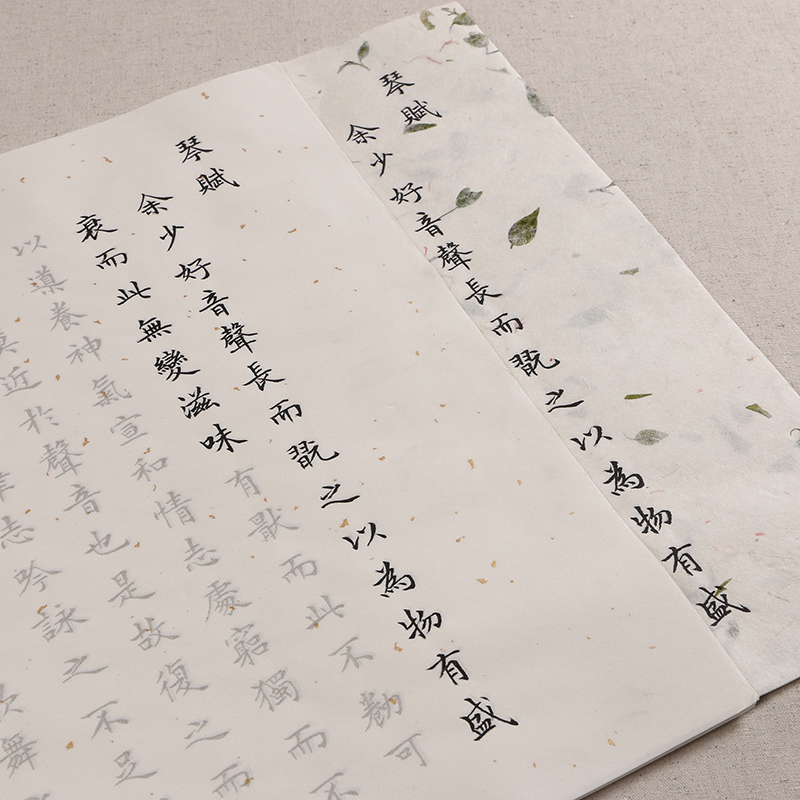 琴賦
余少好音聲長而翫之以為物有盛
琴賦
余少好音聲長而翫之以為物有盛
衰而此無變滋味有猒而此不勌可
以導養神氣宣和情志處窮獨而不
近於聲音也是故復之而
志吟詠之不足
舞